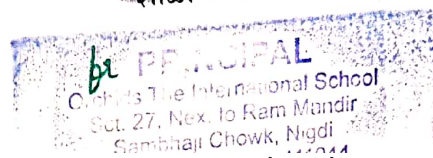 for PRINCIPAL
Orchids The International School
Sct. 27, Nex. to Ram Mandir
Sambhaji Chowk, Nigdi
411044